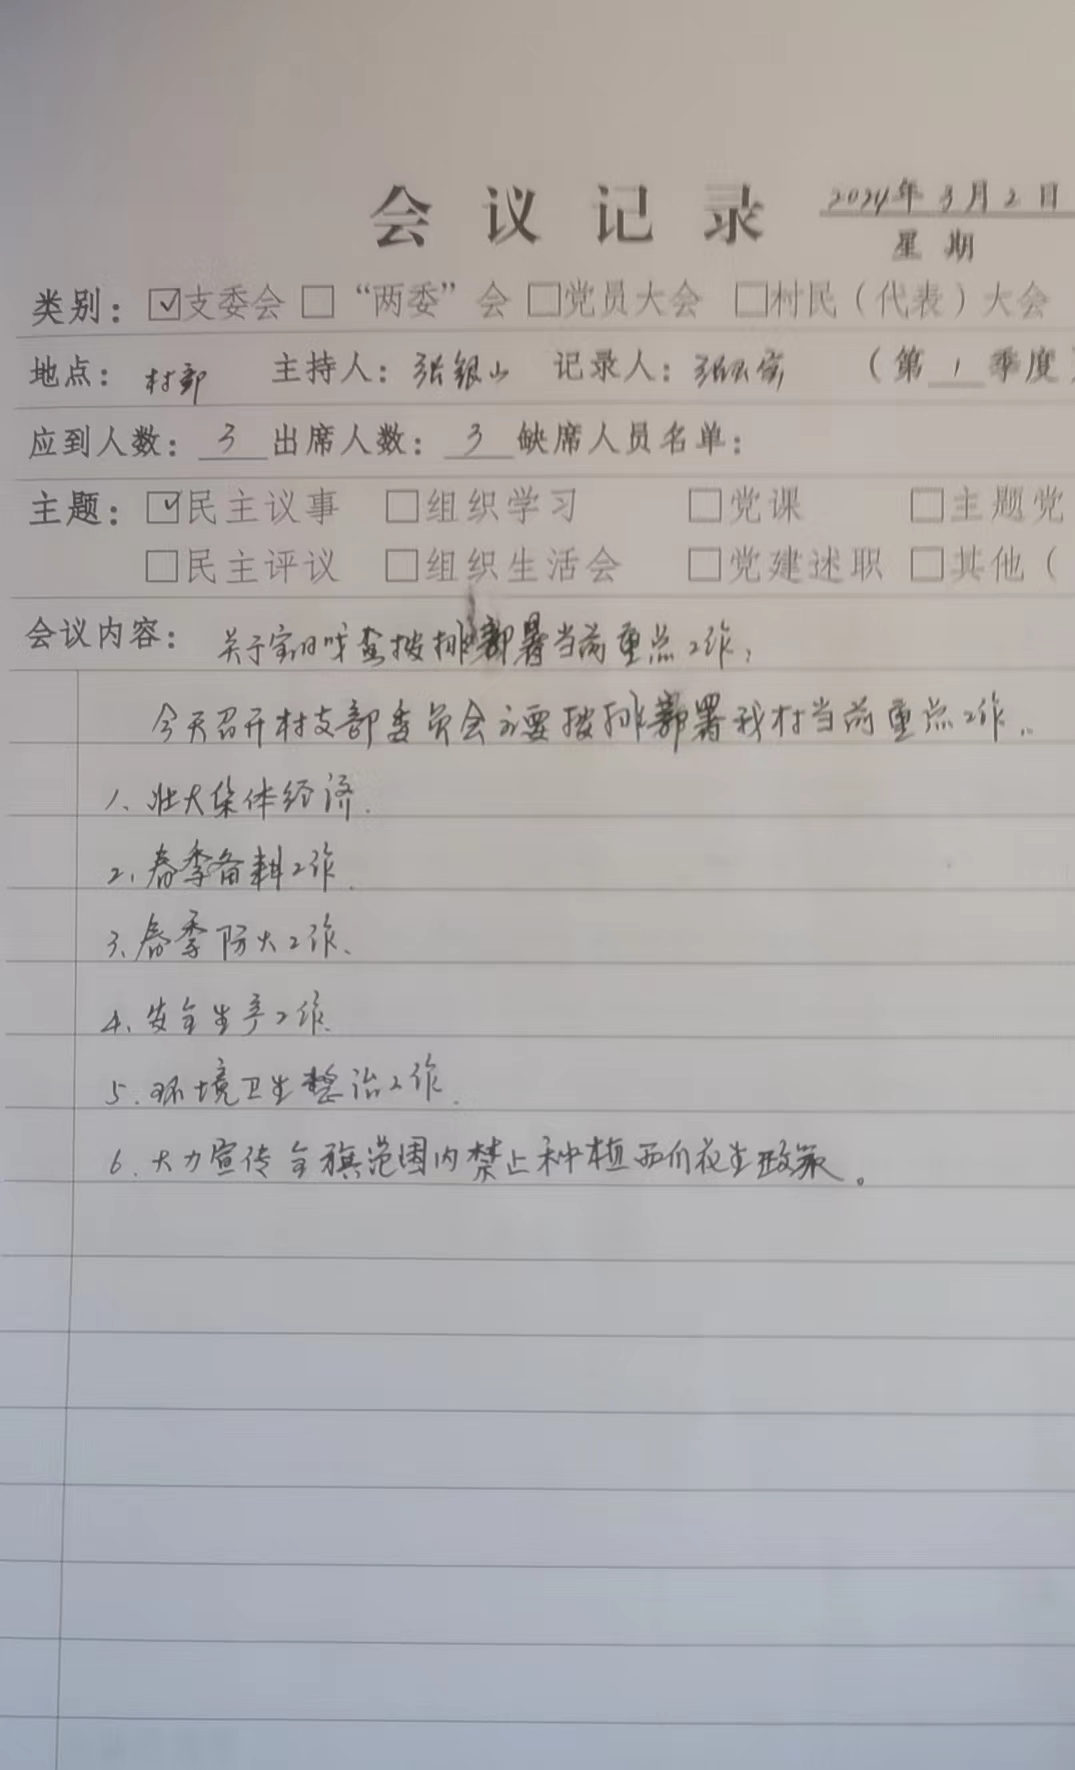 会议记录 2024年3月2日
星期
类别：☑支委会 □“两委”会 □党员大会 □村民（代表）大会
地点：村部 主持人：张银山 记录人：张 （第1季度
应到人数：3 出席人数：3 缺席人员名单：
主题：☑民主议事 □组织学习 □党课 □主题党
□民主评议 □组织生活会 □党建述职 □其他（
会议内容：关于 按排部署当前重点工作，
今天召开村支部委员会主要按排部署我村当前重点工作..
1、壮大集体经济.
2、春季备耕工作.
3、春季防火工作、
4、安全生产工作.
5.环境卫生整治工作.
6.大力宣传全旗范围内禁止种植 政策。